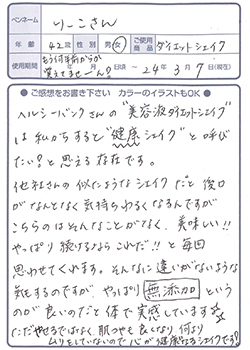 ペンネーム りーこさん
年齢 42歳 性別 男・女 ご使用商品 ダイエットシェイク
使用期間 もう何年前からか覚えてませーん? 年 月 日頃 ~ 24年 3月 7日 現在
●ご感想をお書き下さい カラーのイラストもOK●
ヘルシーバンクさんの"美容液ダイエットシェイク"
は私からすると"健康シェイク"と呼び
たい?と思える存在です。
他社さんの似たようなシェイクだと後口
がなんとなく気持ちわるくなるんですが
こちらのはそんなことがなく、美味しい!!
やっぱり続けるならこれだ!!と毎回
思わせてくれます。そんなに違いがないような
気もするのですが、やっぱり無添加という
のが良いのだと体で実感しています
ただやせるではなく、肌つやも良くなり何より
ムリをしていないので心が健康になるシェイクです!!